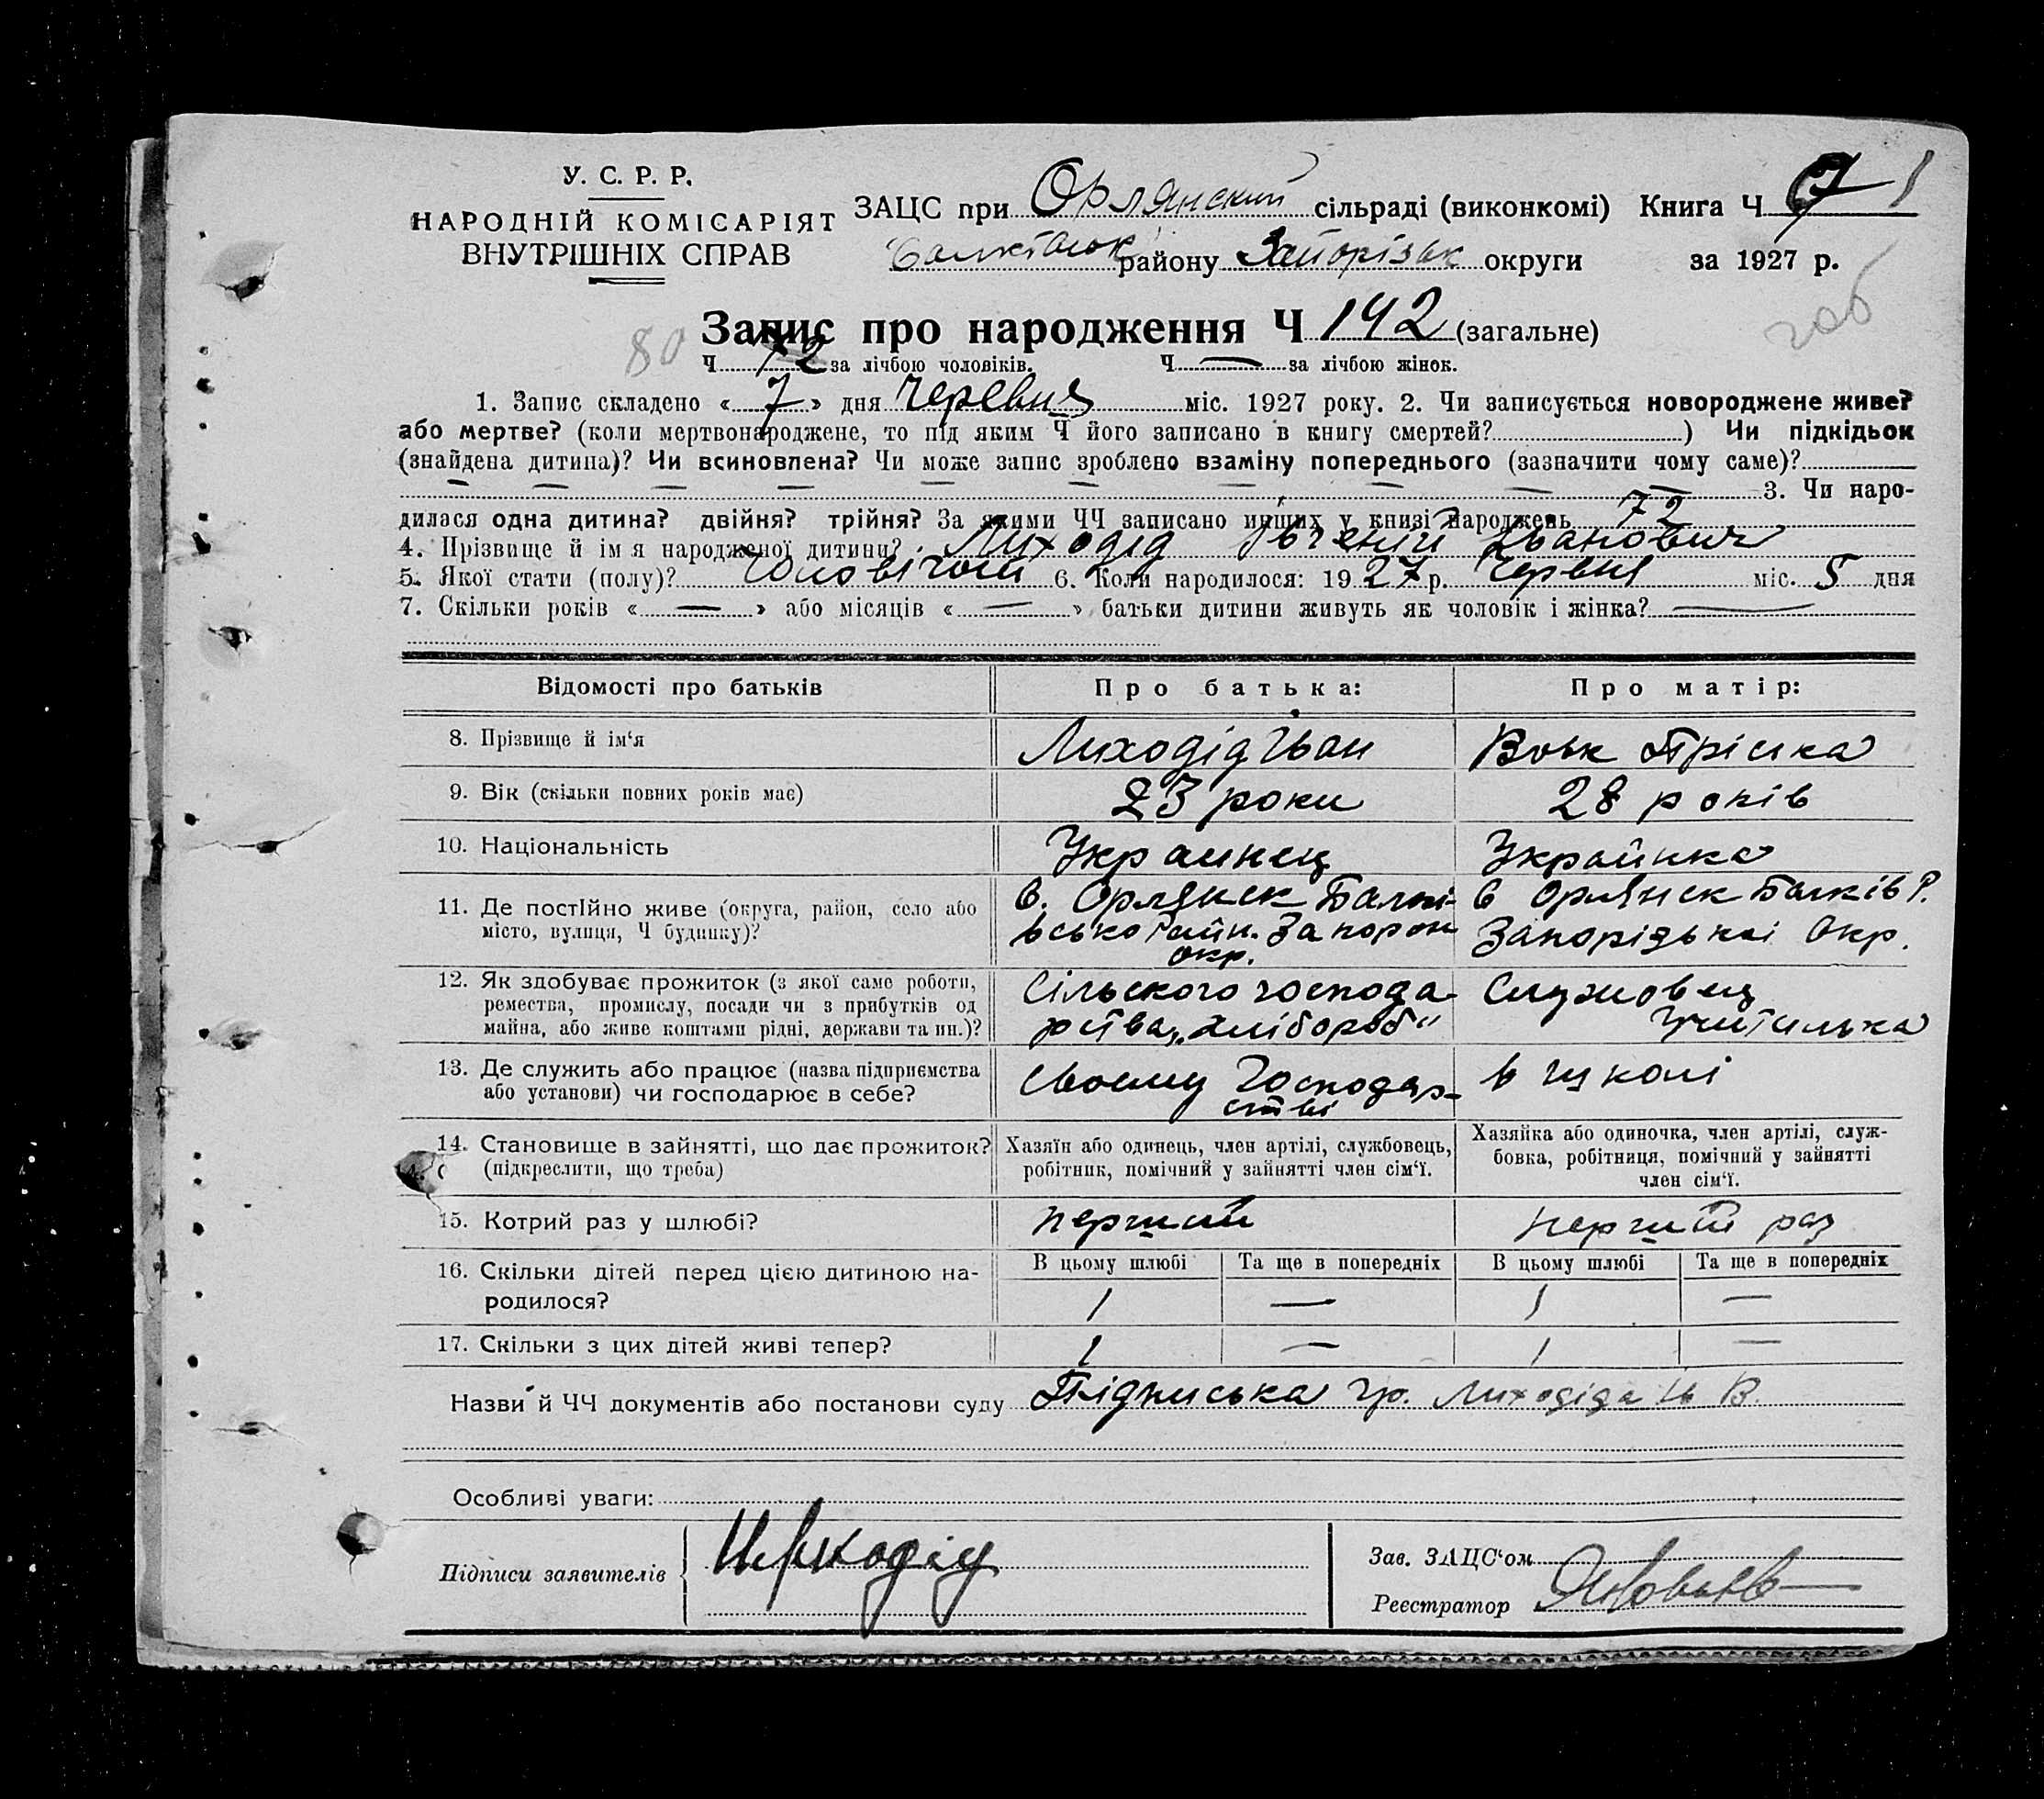 У. С. Р. Р.
НАРОДНІЙ КОМІСАРІЯТ
ВНУТРІШНІХ СПРАВ
ЗАЦС при Орлянский сільраді (виконкомі) Книга Ч
району Запорізьк округи за 1927 р.
Запис про народження Ч 142 (загальне)
80
Ч 72 за лічбою чоловіків. Ч — за лічбою жінок.
1. Запис складено « 7 » дня червня міс. 1927 року. 2. Чи записується новороджене живе?
або мертве? (коли мертвонароджене, то під яким Ч його записано в книгу смертей? ) Чи підкідьок
(знайдена дитина)? Чи всиновлена? Чи може запис зроблено взаміну попереднього (зазначити чому саме)?
— — — — — — — — — 3. Чи наро-
дилася одна дитина? двійня? трійня? За якими ЧЧ записано инших у книзі народжень 72
4. Прізвище й імя народженої дитини? Лиходід Івгений Іванович
5. Якої стати (полу)? 6. Коли народилося: 1927 р. червня міс. 5 дня
7. Скільки років « — » або місяців « — » батьки дитини живуть як чоловік і жінка? —
Відомості про батьків Про батька: Про матір:
8. Прізвище й ім‘я Лиходід Іван Вовк Пріська
9. Вік (скільки повних років має) 23 роки 28 років
10. Національність Украинец Украйинка
11. Де постійно живе (округа, район, село або
місто, вулиця, Ч будинку)?
в. Орлянск Балкі-
вського Райн. Запорож
окр.
в Орлянск Балків Р.
Запорізькоі Окр.
12. Як здобуває прожиток (з якої саме роботи,
ремества, промислу, посади чи з прибутків од
майна, або живе коштами рідні, держави та ин.)?
Сільского господа-
рства „хлібороб“
Службовец
Учителька
13. Де служить або працює (назва підприємства
або установи) чи господарює в себе?
своему Господар-
стві
в школі
14. Становище в зайнятті, що дає прожиток?
(підкреслити, що треба)
Хазяїн або одинець, член артілі, службовець,
робітник, помічний у зайнятті член сім‘ї.
Хазяйка або одиночка, член артілі, служ-
бовка, робітниця, помічний у зайнятті
член сім‘ї.
15. Котрий раз у шлюбі? перший перший раз
16. Скільки дітей перед цією дитиною на-
родилося?
В цьому шлюбі Та ще в попередніх В цьому шлюбі Та ще в попередніх
1 — 1 —
17. Скільки з цих дітей живі тепер? 1 — 1 —
Назви й ЧЧ документів або постанови суду Підписька гр. Лиходіда Ів В.
Особливі уваги:
Підписи заявителів
Зав. ЗАЦС‘ом
Реєстратор